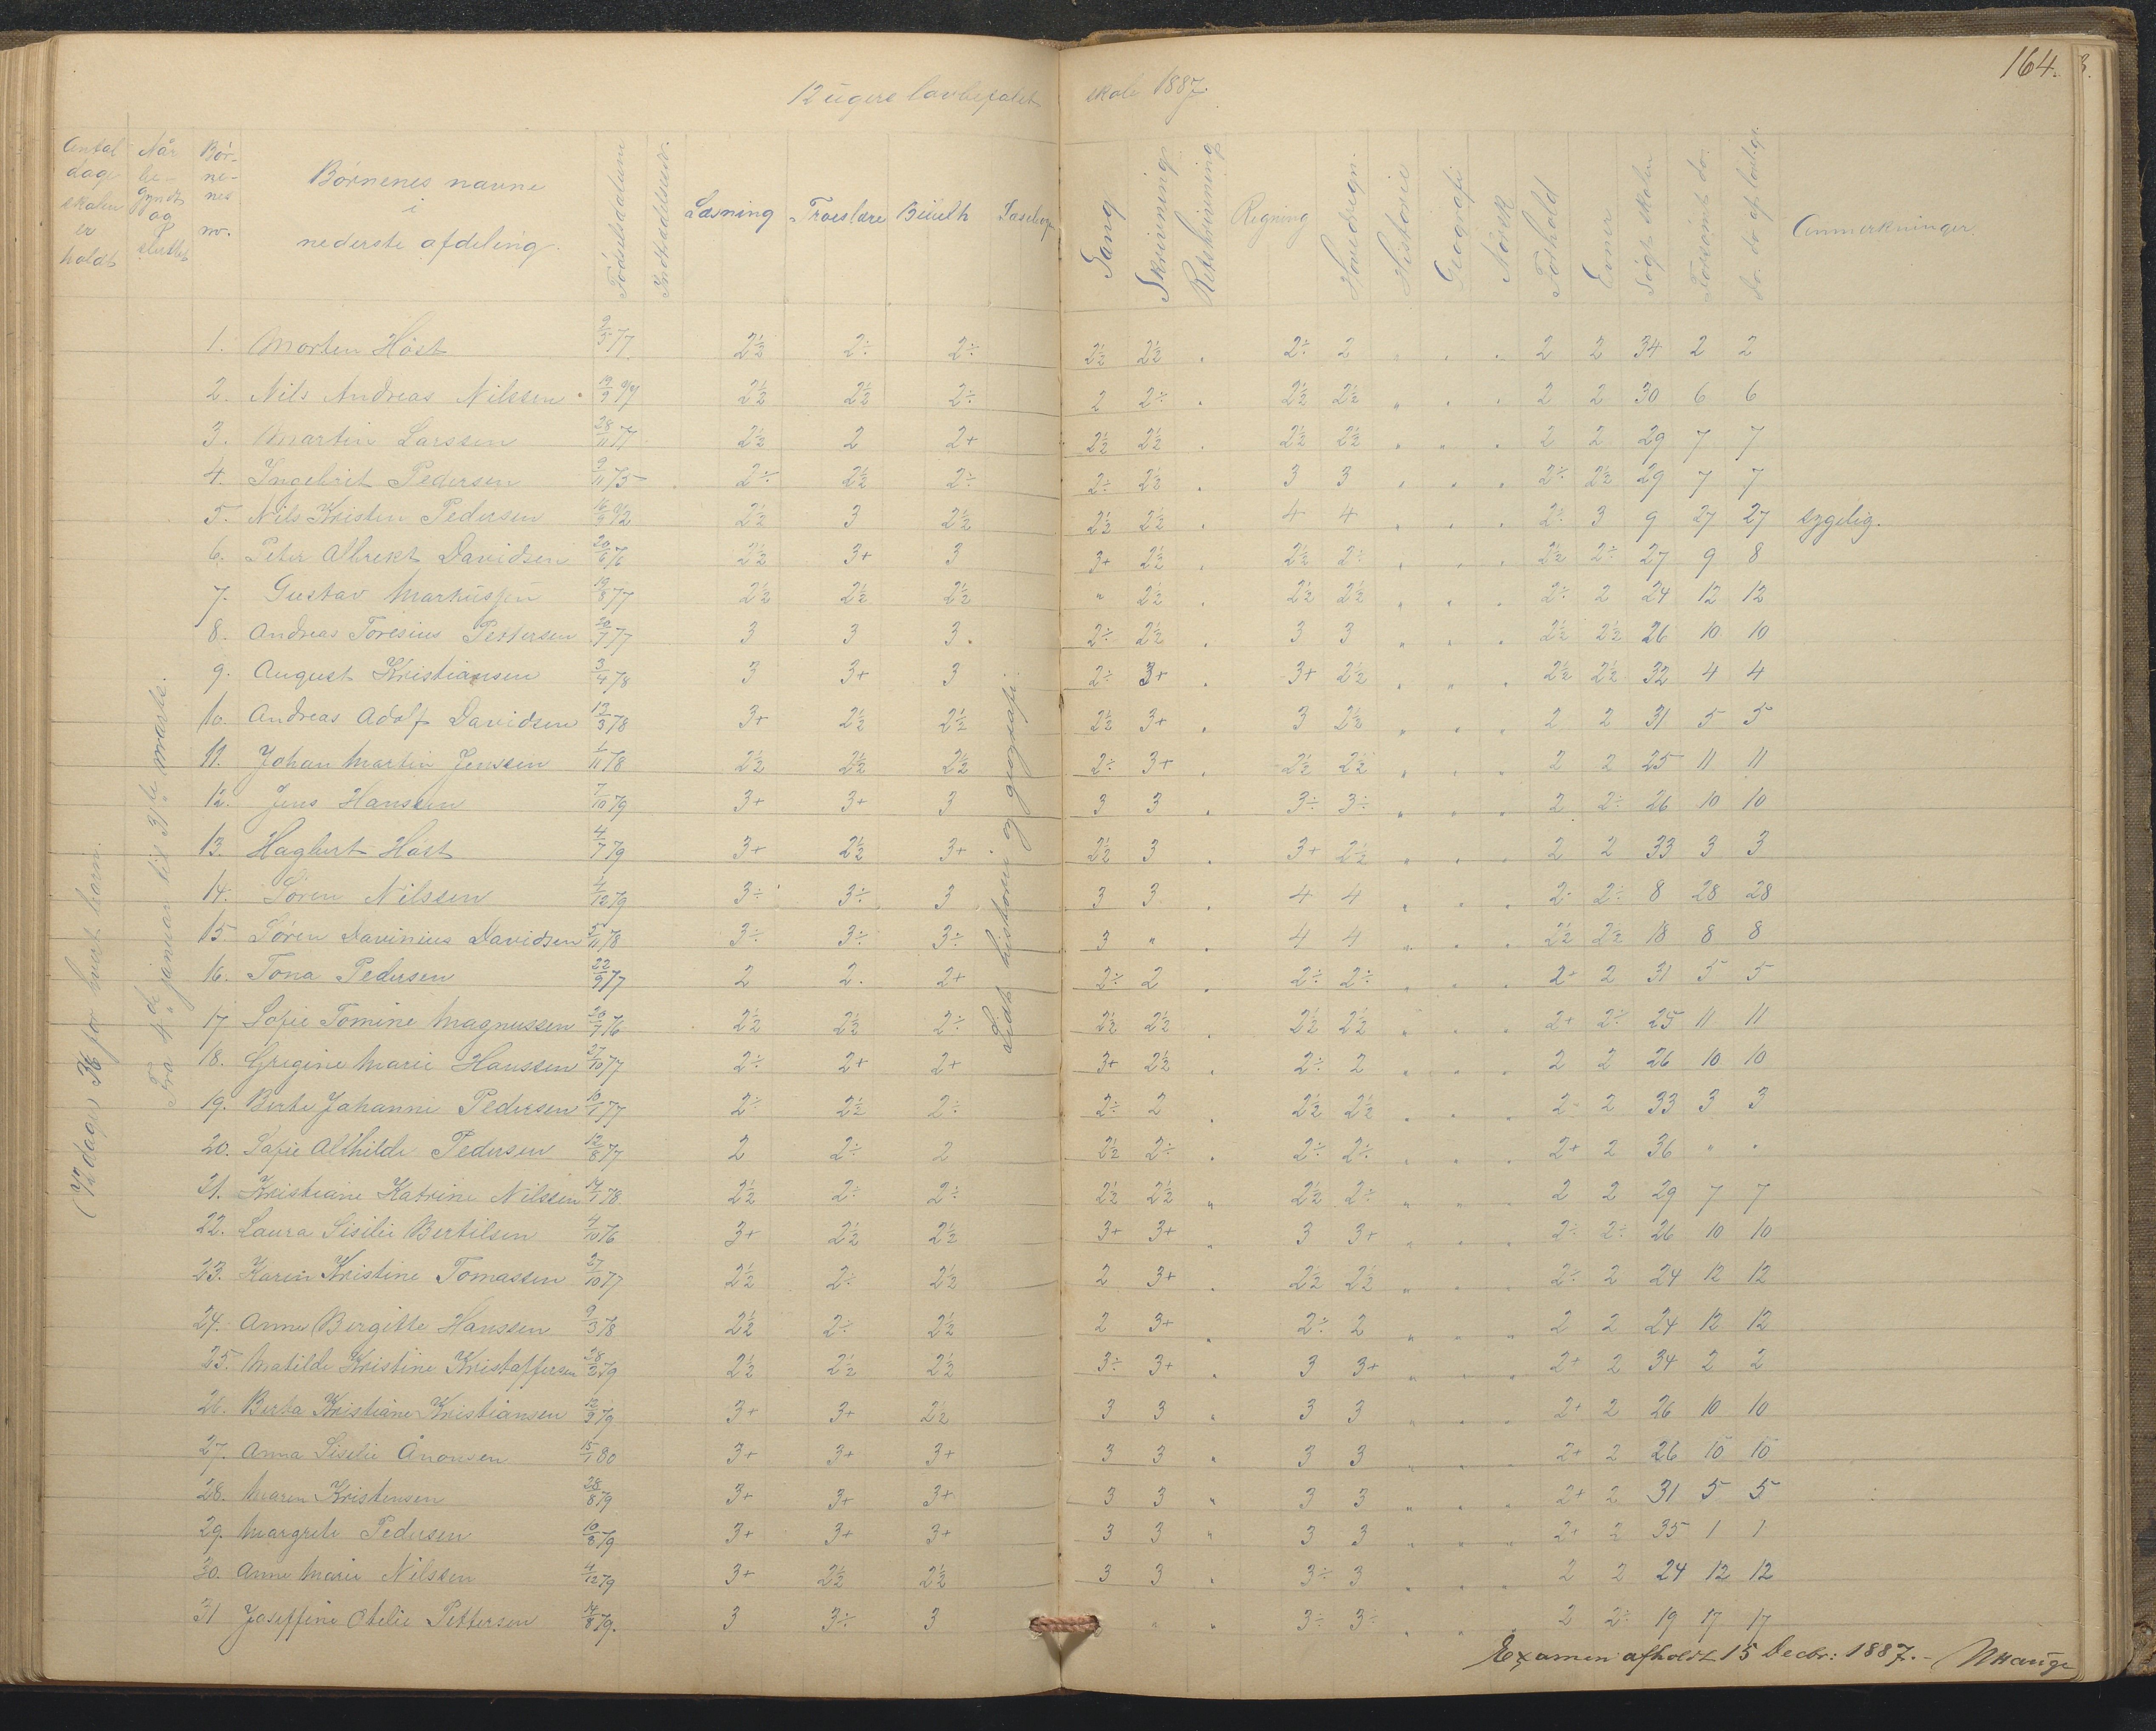 164.
12 ugers lovbefalet skole 1887.
Antal dage skolen er holdt
Når begyndt og sluttet
Børnenes no.
Børnenes navne i nederste afdeling.
Fødselsdatum
Indtrædelsesdr.
Læsning
Troeslære
Bibelh
Sang
Skrivning
Retskrivning
Regning
Hovedregn.
Historie
Geografi
Norsk
Forhold
Evner
Søgt skolen
Forsømt do.
Do. do af lovlige
Anmerkninger.
(72 dage) 36 for hvert barn.
Fra 4de januar til 31te marts.
Lidt historie og geografi.
1. Morten Høst 9/5 77 2½ 2÷ 2÷ 2½ 2½ „ 2÷ 2 „ „ „ 2 2 34 2 2
2. Nils Andreas Nilssen 19/9 77 2½ 2½ 2÷ 2 2÷ „ 2½ 2½ „ „ „ 2 2 30 6 6
3. Martin Larssen 28/11 77 2½ 2 2+ 2½ 2½ „ 2½ 2½ „ „ „ 2 2 29 7 7
4. Ingebrit Pedersen 9/11 75 2÷ 2½ 2÷ 2÷ 2½ „ 3 3 „ „ „ 2÷ 2½ 29 7 7
5. Nils Kristen Pedersen 16/9 72 2½ 3 2½ 2½ 2½ „ 4 4 „ „ „ 2÷ 3 9 27 27 sygelig.
6. Peter Albrekt Davidsen 20/6 76 2½ 3+ 3 3+ 2½ „ 2½ 2÷ „ „ „ 2½ 2÷ 27 9 8
7. Gustav Markussen 19/8 77 2½ 2½ 2½ „ 2½ „ 2½ 2½ „ „ „ 2÷ 2 24 12 12
8. Andreas Toresius Pettersen 20/7 77 3 3 3. 2÷ 2½ „ 3 3 „ „ „ 2½ 2½ 26 10 10
9. August Kristiansen 3/4 78 3 3+ 3 2÷ 3+ „ 3+ 2½ „ „ „ 2½ 2½ 32 4 4
10. Andreas Adolf Davidsen 13/3 78 3+ 2½ 2½ 2½ 3+ „ 3 2½ „ „ „ 2 2 31 5 5
11. Johan Martin Jenssen 1/11 78 2½ 2½ 2½ 2÷ 3+ „ 2½ 2½ „ „ „ 2 2 25 11 11
12. Jens Hanssen 7/10 79 3+ 3+ 3 3 3 „ 3÷ 3÷ „ „ „ 2 2÷ 26 10 10
13. Hagbert Høst 4/7 79 3+ 2½ 3+ 2½ 3 „ 3+ 2½ „ „ „ 2 2 33 3 3
14. Søren Nilssen 4/12 79 3÷ 3÷ 3 3 3 „ 4 4 „ „ „ 2÷ 2÷ 8 28 28
15. Søren Davinius Davidsen 5/11 78 3÷ 3÷ 3÷ 3 „ „ 4 4 „ „ „ 2½ 2½ 18 8 8
16. Tona Pedersen 22/9 77 2 2. 2+ 2÷ 2 „ 2÷ 2÷ „ „ „ 2+ 2 31 5 5
17 Sofie Tomine Magnussen 20/7 76 2½ 2½ 2÷ 2½ 2½ „ 2½ 2½ „ „ „ 2+ 2÷ 25 11 11
18. Gregine Marie Hanssen 27/10 77 2÷ 2+ 2+ 3+ 2½ „ 2÷ 2 „ „ „ 2 2 26 10 10
19. Berte Johanne Pedersen 10/1 77 2÷ 2½ 2÷ 2÷ 2 „ 2½ 2½ „ „ „ 2÷ 2 33 3 3
20. Sofie Alvhilde Pedersen 12/8 77 2 2÷ 2 2½ 2÷ „ 2÷ 2÷ „ „ „ 2+ 2 36 „ „
21. Kristiane Katrine Nilssen 14/1 78 2½ 2÷ 2÷ 2½ 2½ „ 2½ 2÷ „ „ „ 2 2 29 7 7
22. Laura Sisilie Bertilsen 4/10 76 3+ 2½ 2½ 3+ 3+ „ 3 3+ „ „ „ 2÷ 2÷ 26 10 10
23. Karen Kristine Tomassen 27/10 77 2½ 2÷ 2½ 2 3+ „ 2½ 2½ „ „ „ 2÷ 2 24 12 12
24. Anne Bergitte Hanssen 9/3 78 2½ 2÷ 2½ 2 3+ „ 2÷ 2 „ „ „ 2 2 24 12 12
25. Matilde Kristine Kristoffersen 28/2 79 2½ 2½ 2½ 3÷ 3+ „ 3 3+ „ „ „ 2+ 2 34 2 2
26. Berta Kristiane Kristiansen 12/9 79 3+ 3+ 2½ 3 3 „ 3 3 „ „ „ 2+ 2 26 10 10
27. Anna Sisilie Aronsen 15/1 80 3+ 3+ 3+ 3 3 „ 3 3 „ „ „ 2+ 2 26 10 10
28. Maren Kristensen 28/8 79 3+ 3+ 3+ 3 3 „ 3 3 „ „ „ 2+ 2 31 5 5
29. Margrete Pedersen 10/8 79 3+ 3+ 3+ 3 3 „ 3 3 „ „ „ 2+ 2 35 1 1
30. Anne Marie Nilssen 4/12 79 3+ 2½ 2½ 3 3 „ 3÷ 3 „ „ „ 2 2 24 12 12
31 Joseffine Otelie Pettersen 14/8 79. 3 3÷ 3 „ „ 3÷ 3÷ „ „ „ 2 2÷ 19 17 17
Examen afholdt 15 Decbr: 1887. - NHauge